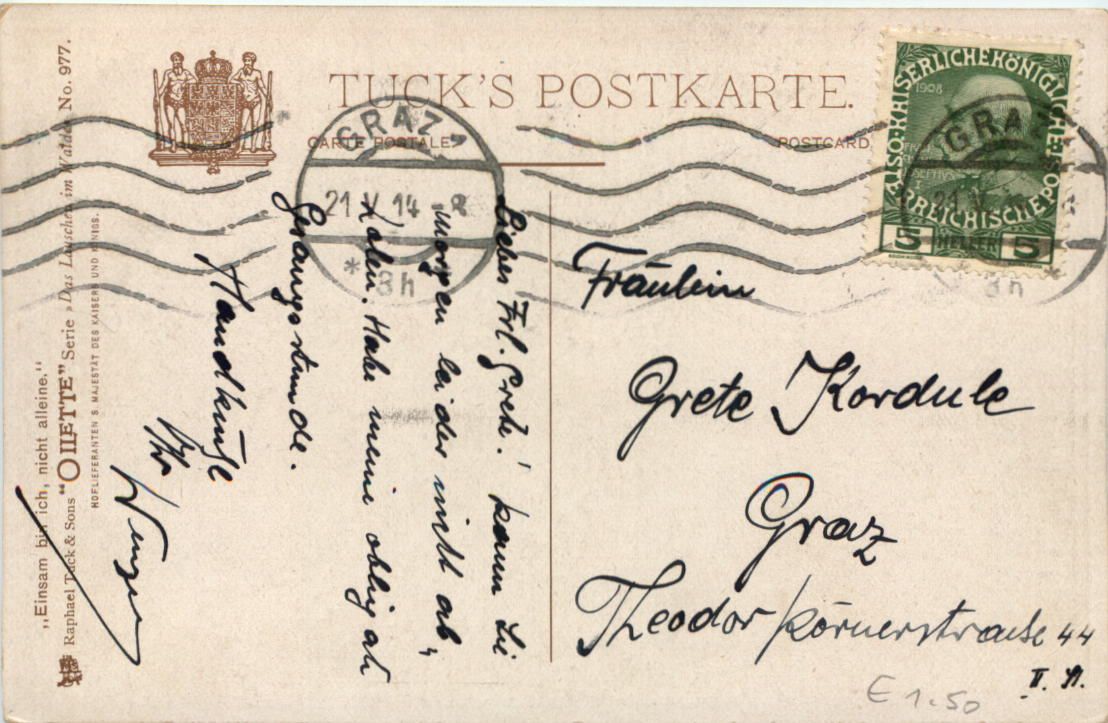 TUCK'S POSTKARTE.
CARTE POSTALE
POSTCARD
GRAZ
21 V 14 - 8
* 3h
KAISERLICHE KÖNIGLICHE ÖSTERREICHISCHE POST
1908
5 HELLER 5
GRAZ
21 V
3h *
Liebes Frl. Grete! kann Sie
morgen leider nicht ab„
holen. Habe meine oblig ate
Gesangsstunde.
Handküsse
Ihr
Fräulein
Grete Kordule
Graz
Theodor Körnerstrasse 44
II. St.
E 1.50
„Einsam bin ich, nicht alleine."
Raphael Tuck & Sons "OILETTE" Serie »Das Lauschen im Walde« No. 977.
HOFLIEFERANTEN S. MAJESTÄT DES KAISERS UND KÖNIGS.